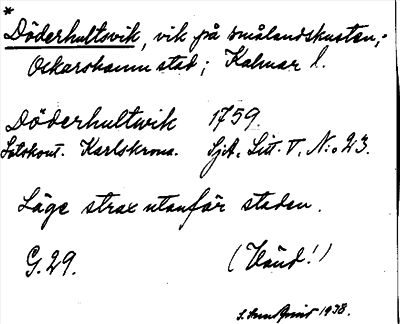 *
Döderhultsvik, vik på smålandskusten,
Oskarshamn stad; Kalmar l.
Döderhultwik 1759.
Lotskont. Karlskrona. Sjö. Litt. V, N:o 23.
Läge strax utanför staden.
G. 29. (Vänd!)
1938.